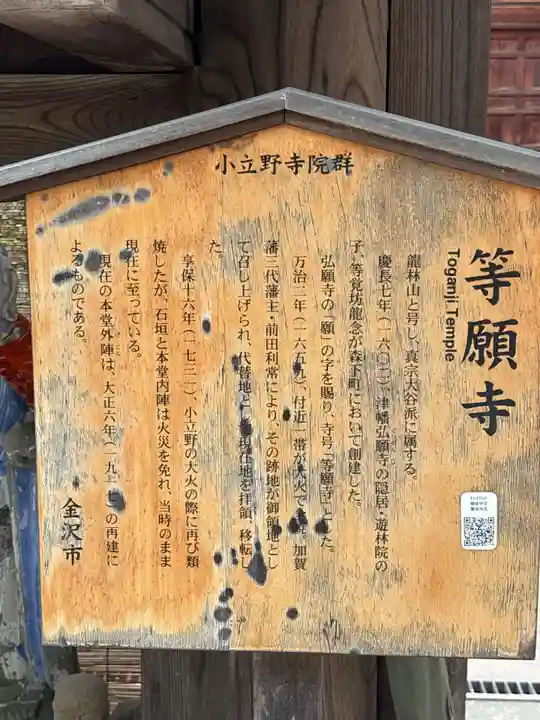 小立野寺院群
等願寺
Toganji Temple
龍林山と号し、真宗大谷派に属する。
慶長七年(一六〇二)、津幡弘願寺の隠居・遊林院の
子、等覚坊龍念が森下町において創建した。
弘願寺の「願」の字を賜り、寺号「等願寺」とした。
万治二年(一六五九)、付近一帯が大火で 加賀
藩三代藩主・前田利常により、その跡地が御領地とし
て召し上げられ、代替地とし 現在地を拝領、移転し
た。
享保十六年(一七三一)、小立野の大火の際に再び類
焼したが、石垣と本堂内陣は火災を免れ、当時のまま
現在に至っている。
現在の本堂外陣は、大正六年(一九一七)の再建に
よるものである。
金沢市
English